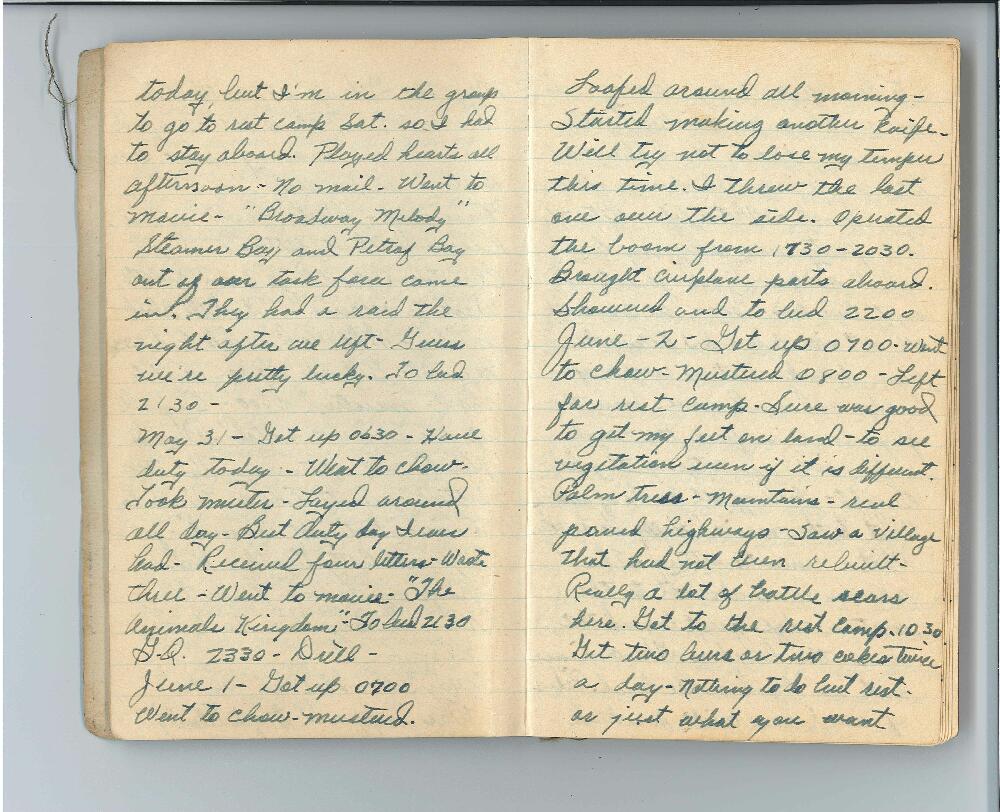 today, but I'm in the group
to go to rest camp Sat. so I had
to stay aboard. Played hearts all
afternoon - No mail - Went to
movie - "Broadway Melody"
Steamer Bay and Petrof Bay
out of our task force came
in. They had a raid the
night after we left - Guess
we're pretty lucky. To bed
2130 -
May 31 - Got up 0630 - Have
duty today - Went to chow -
Took muster - Layed around
all day - Best duty day I ever
had - Received four letters - Wrote
three - Went to movie - "The
Animals Kingdom" - To bed 2130
G.Q. 2330 - Drill -
June 1 - Got up 0700
Went to chow - mustered.
Loafed around all morning -
Started making another knife -
Will try not to lose my temper
this time. I threw the last
one over the side. Operated
the boom from 1730 - 2030.
Brought airplane parts aboard.
Showered and to bed 2200
June - 2 - Got up 0700 - Went
to chow - Mustered 0800 - Left
for rest camp - Sure was good
to get my feet on land - to see
vegetation even if it is different.
Palm tress - Mountains - real
paved highways - Saw a village
that had not been rebuilt -
Really a lot of battle scars
here. Got to the rest camp. 1030
Get two beers or two cokes twice
a day - Nothing to do but rest -
or just what you want